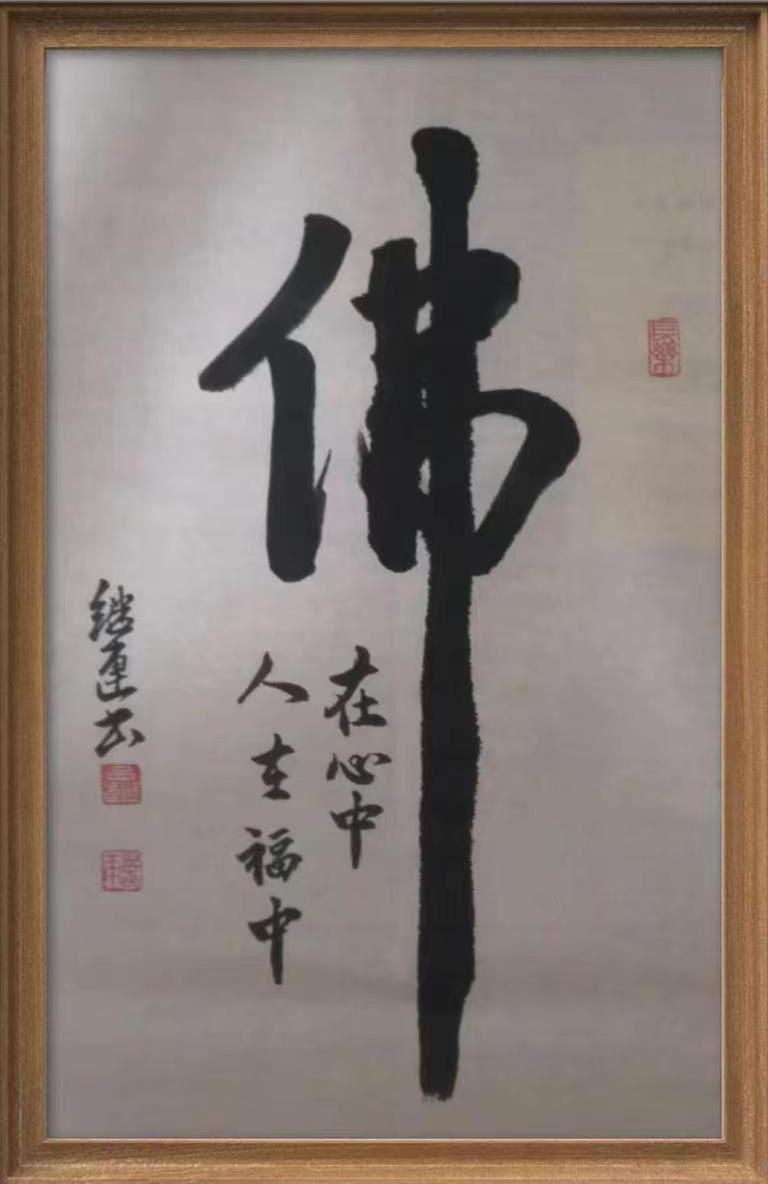 佛
在心中
人在福中
继运书